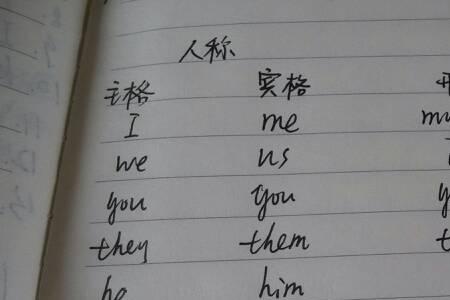 人称
主格 宾格
I me
we us
you you
they them
he him